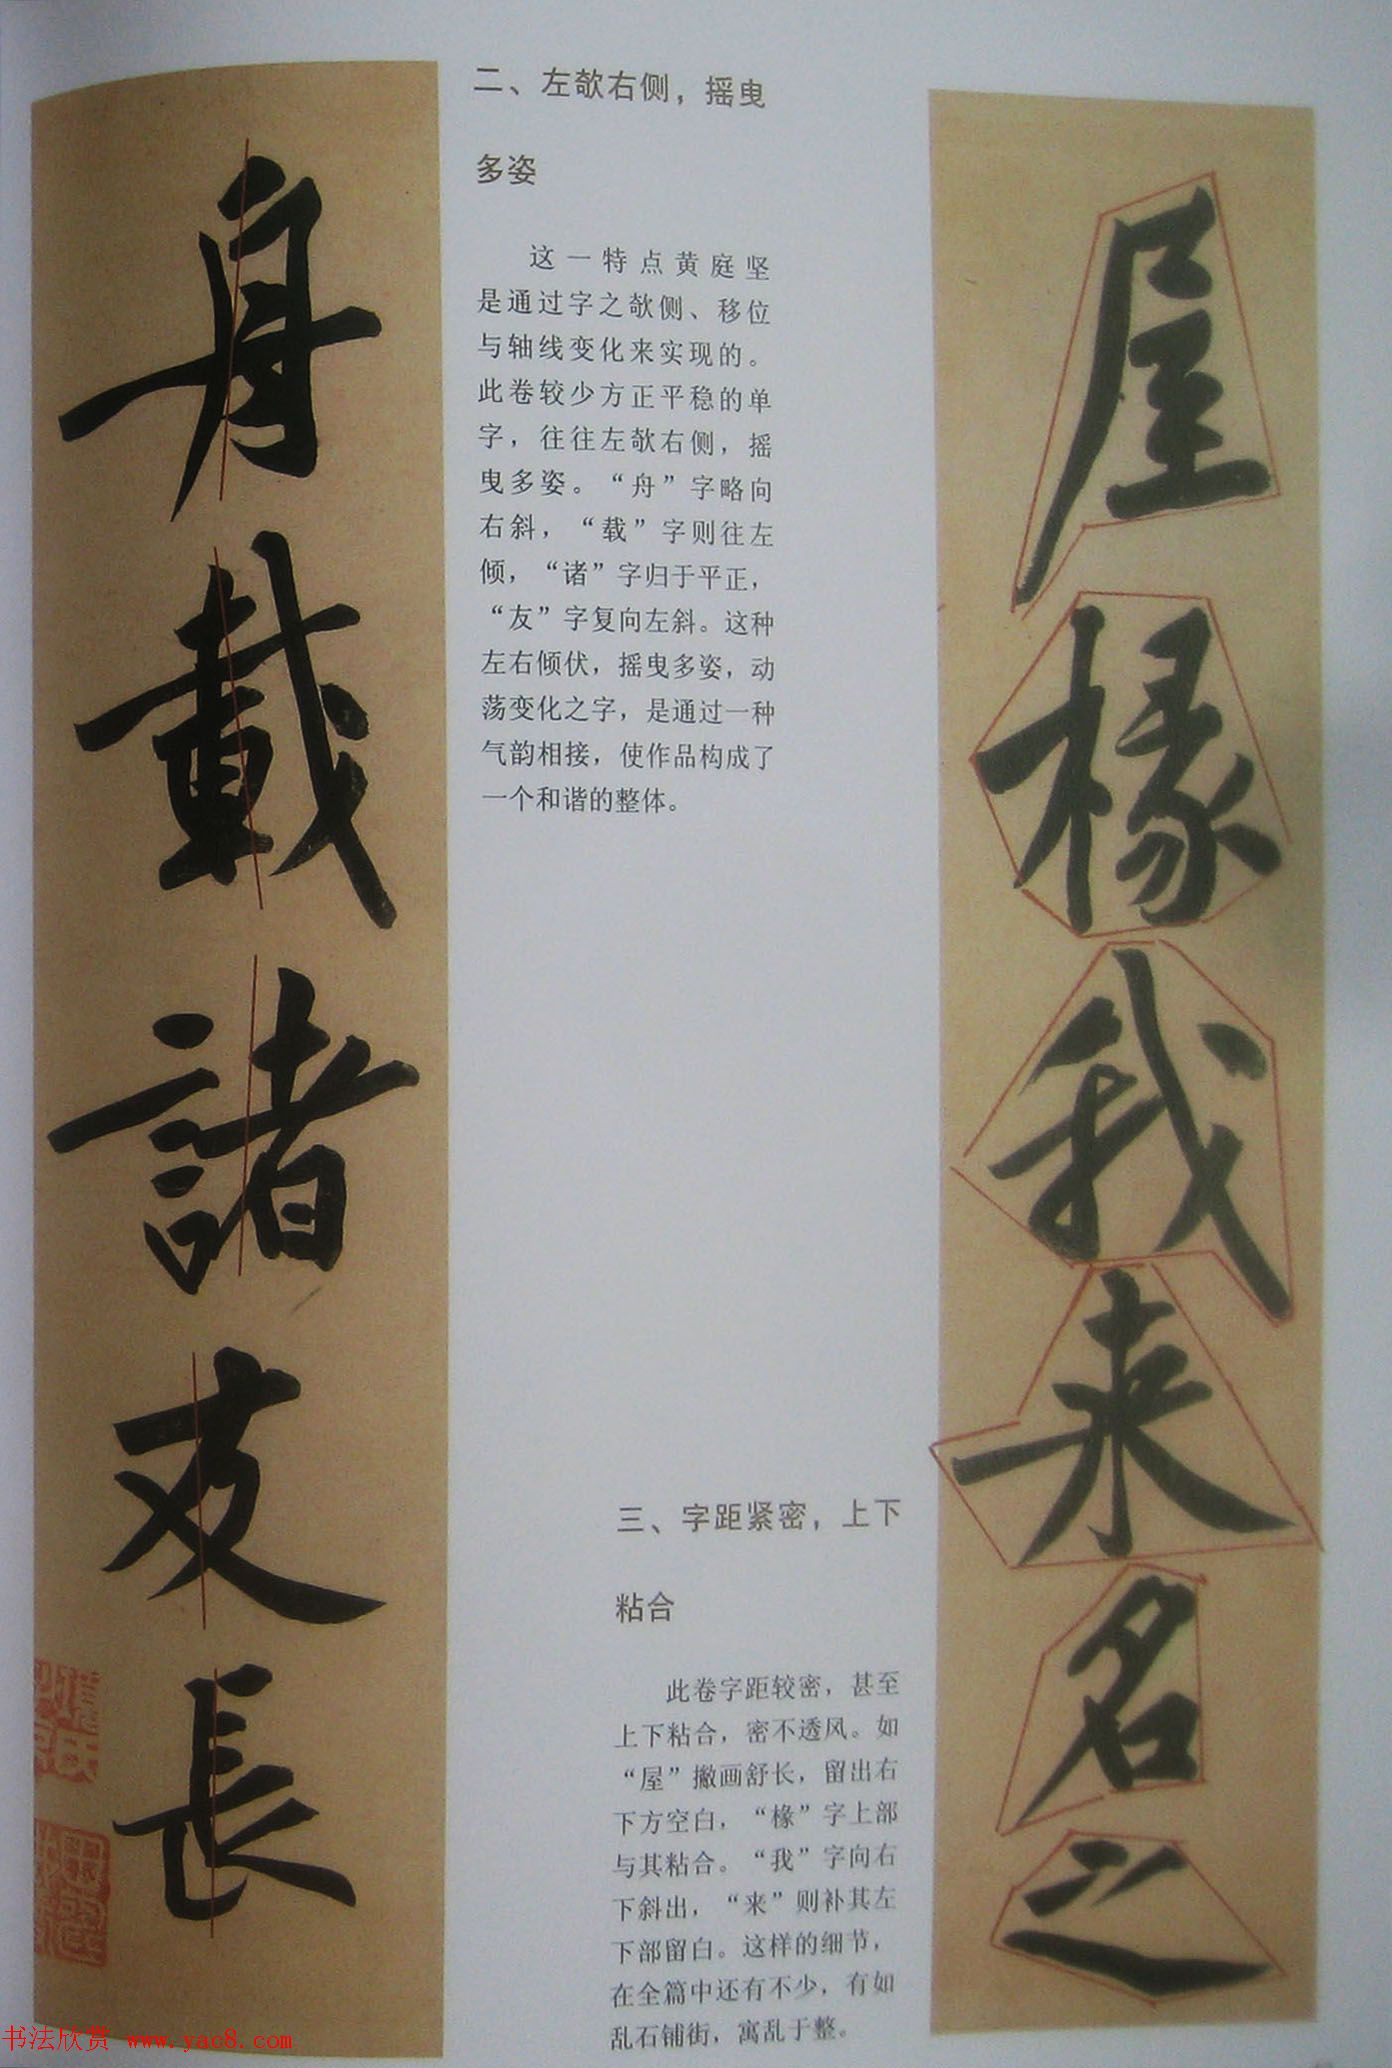 舟載諸友長
二、左欹右侧，摇曳
多姿
这一特点黄庭坚
是通过字之欹侧、移位
与轴线变化来实现的。
此卷较少方正平稳的单
字，往往左欹右侧，摇
曳多姿。“舟”字略向
右斜，“载”字则往左
倾，“诸”字归于平正，
“友”字复向左斜。这种
左右倾伏，摇曳多姿，动
荡变化之字，是通过一种
气韵相接，使作品构成了
一个和谐的整体。
三、字距紧密，上下
粘合
此卷字距较密，甚至
上下粘合，密不透风。如
“屋”撇画舒长，留出右
下方空白，“椽”字上部
与其粘合。“我”字向右
下斜出，“来”则补其左
下部留白。这样的细节，
在全篇中还有不少，有如
乱石铺街，寓乱于整。
屋椽我来名之
书法欣赏 www.yac8.com